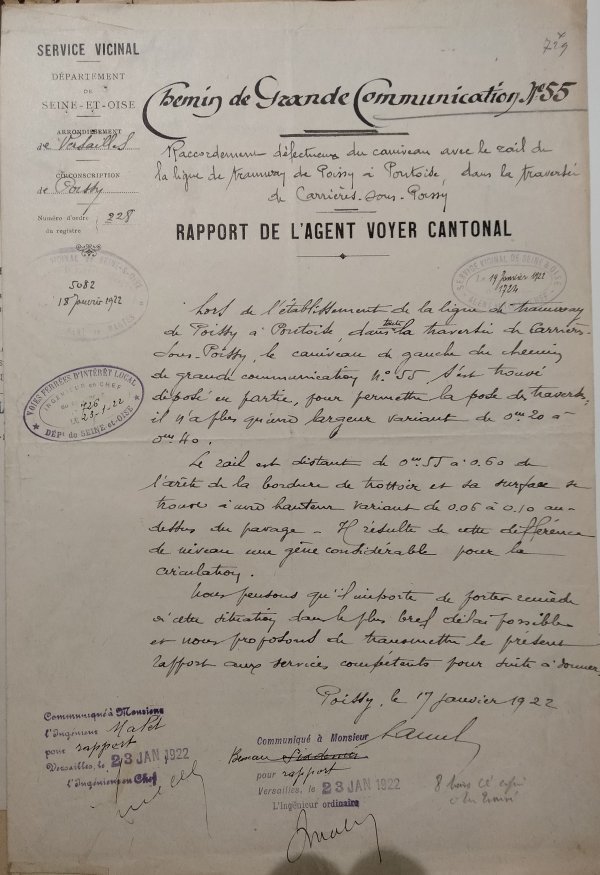 SERVICE VICINAL
DÉPARTEMENT
DE
SEINE-ET-OISE
ARRONDISSEMENT
de Versailles
CIRCONSCRIPTION
de Poissy
Numéro d'ordre
du registre
228
729
Chemin de Grande Communication N° 55
Raccordement défectueux du caniveau avec le rail de
la ligne de tramway de Poissy à Pontoise, dans la traversée
de Carrières-sous-Poissy
RAPPORT DE L'AGENT VOYER CANTONAL
5082
18 Janvier 1922
SERVICE VICINAL DE SEINE & OISE
Le 19 Janvier 1922
1724
VOIES FERRÉES D'INTÉRÊT LOCAL
INGÉNIEUR EN CHEF
726
LE 23-1-22
DÉPt de SEINE-ET-OISE
Lors de l'établissement de la ligne de tramway
de Poissy à Pontoise, dans toute la traversée de Carrières-
sous-Poissy, le caniveau de gauche du chemin
de grande communication N° 55 s'est trouvé
déposé en partie, pour permettre la pose des traverses,
il n'a plus qu'une largeur variant de 0m20 à
0m40.
Le rail est distant de 0m55 à 0.60 de
l'arête de la bordure de trottoir et sa surface se
trouve à une hauteur variant de 0.06 à 0.10 au-
dessus du pavage - Il résulte de cette différence
de niveau une gêne considérable pour la
circulation.
Nous pensons qu'il importe de porter remède
à cette situation dans le plus bref délai possible
et nous proposons de transmettre le présent
rapport aux services compétents pour suite à donner.
Poissy, le 17 janvier 1922
Communiqué à Monsieur
l'Ingénieur Malet
pour rapport
Versailles, le 23 JAN 1922
l'Ingénieur en Chef
Communiqué à Monsieur
Bureau
pour rapport
Versailles, le 23 JAN 1922
L'Ingénieur ordinaire